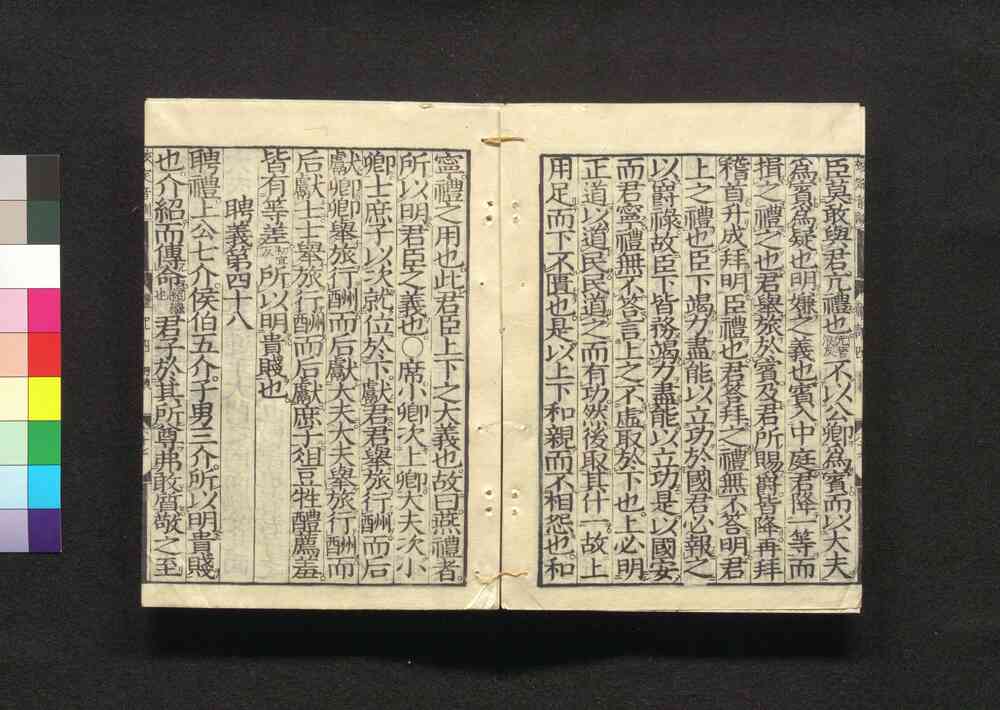 臣莫敢與君亢禮也不以公卿爲賓而以大夫
爲賓爲疑也明嫌之義也賓入中庭君降一等而
揖之禮之也君舉旅於賓及君所賜爵皆降再拜
稽首升成拜明臣禮也君答拜之禮無不答明君
上之禮也臣下竭力盡能以立功於國君必報之
以爵祿故臣下皆務竭力盡能以立功是以國安
而君寧禮無不答言上之不虛取於下也上必明
正道以道民民道之而有功然後取其什一故上
用足而下不匱也是以上下和親而不相怨也和
寧禮之用也此君臣上下之大義也故曰燕禮者
所以明君臣之義也○席小卿次上卿大夫次小
卿士庶子以次就位於下獻君君舉旅行酬而后
獻卿卿舉旅行酬而后獻大夫大夫舉旅行酬而
后獻士士舉旅行酬而后獻庶子俎豆牲醴薦羞
皆有等差所以明貴賤也
聘義第四十八
聘禮上公七介侯伯五介子男三介所以明貴賤
也介紹而傳命君子於其所尊弗敢質敬之至